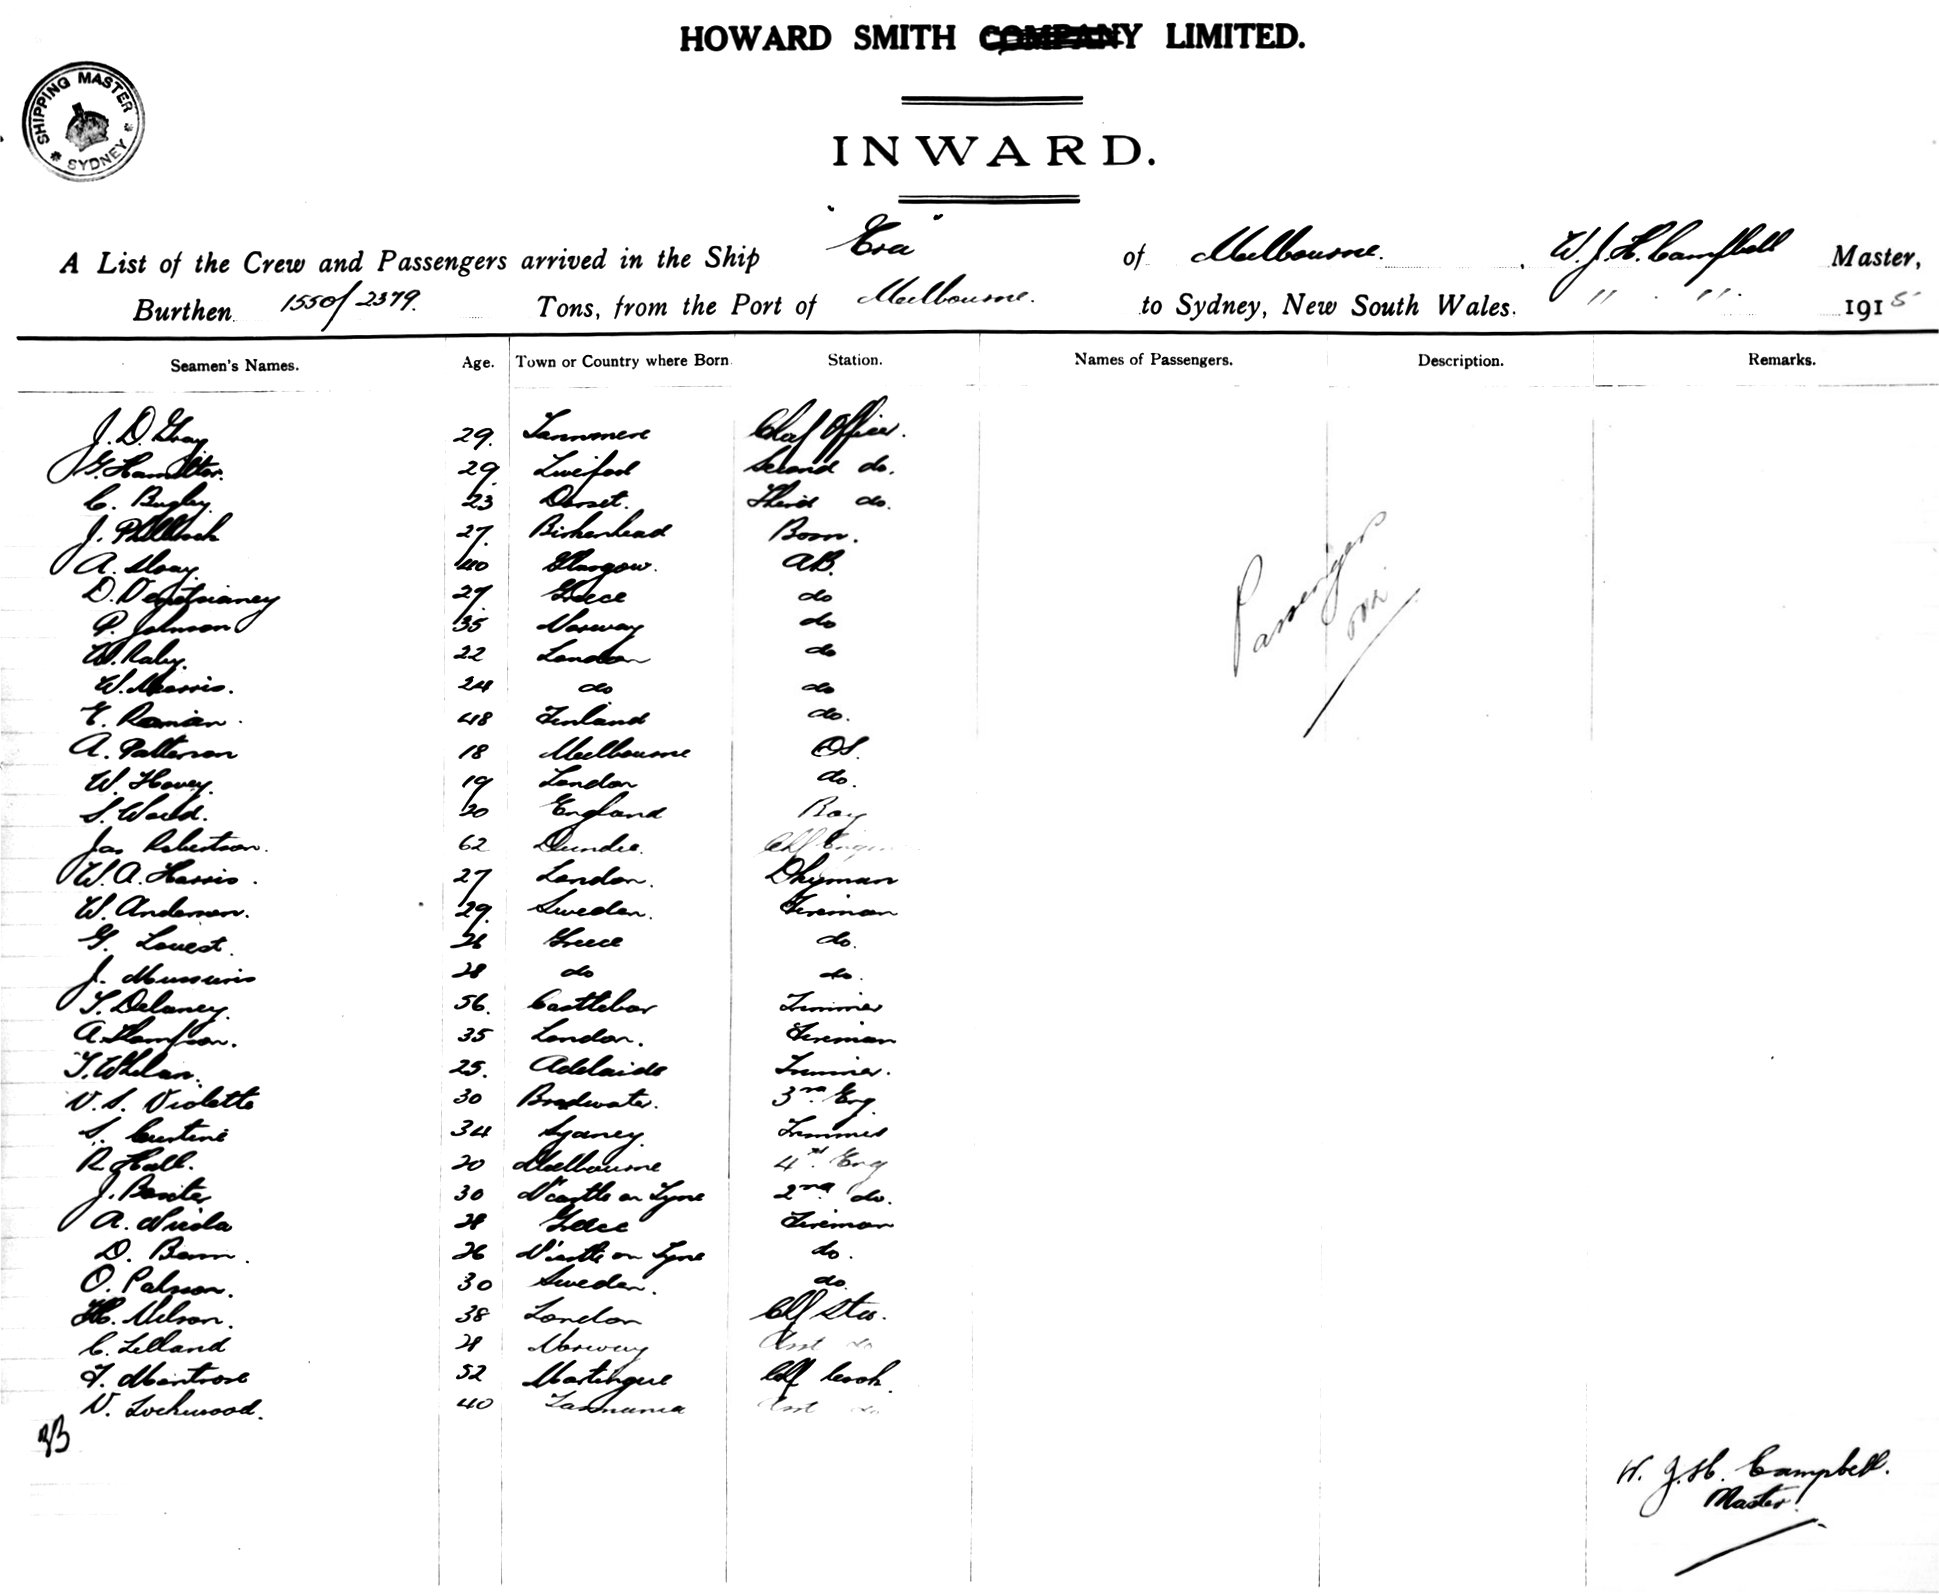 HOWARD SMITH COMPANY LIMITED.
SHIPPING MASTER
SYDNEY
INWARD.
A List of the Crew and Passengers arrived in the Ship "Era" of Melbourne. W. J. H. Campbell Master,
Burthen 1550/2379. Tons, from the Port of Melbourne. to Sydney, New South Wales. " " 1915
Seamen's Names. Age. Town or Country where Born Station. Names of Passengers. Description. Remarks.
J. D. Gray 29. Officer.
G. Hamilton. 29. Second do.
C. 23 Dorset. Third do.
J. 27. Birkenhead Bosn.
A. 40 Glasgow. AB.
D. 27 Greece do
P. Johnson 35 Norway do
W. Raby. 22 London do
W. Morris. 24 do do
E. 48 Finland do.
A. Patterson 18 Melbourne OS.
W. Hovey. 19 London do.
S. Ward. 20 England Boy
Jas Robertson. 62 Dundee.
W. A. Harris. 27 London. Dkyman
W. Anderson. 29. Sweden. Fireman
G. 26 Greece do.
J. 28 do do.
T. Delaney. 56. Castlebar Trimmer
A. Thompson. 35 London. Fireman
T. Whelan. 25. Adelaide Trimmer.
V. S. Violette 30 Broadwater. 3rd Eng
S. 34 Sydney. Trimmer
R. Hall. 20 Melbourne 4th Eng
J. 30 N'castle on Tyne 2nd do.
A. Nicola 28 Greece Fireman
D. 26 N'castle on Tyne do.
O. Palsson. 30 Sweden. do.
H. Nelson. 38 London Chf Stew.
C. Lelland 28 Norway Asst do
F. Montrose 52 Martinque Chf Cook.
V. Lockwood. 40 Tasmania Asst do
33
Passengers
W. J. H. Campbell.
Master.